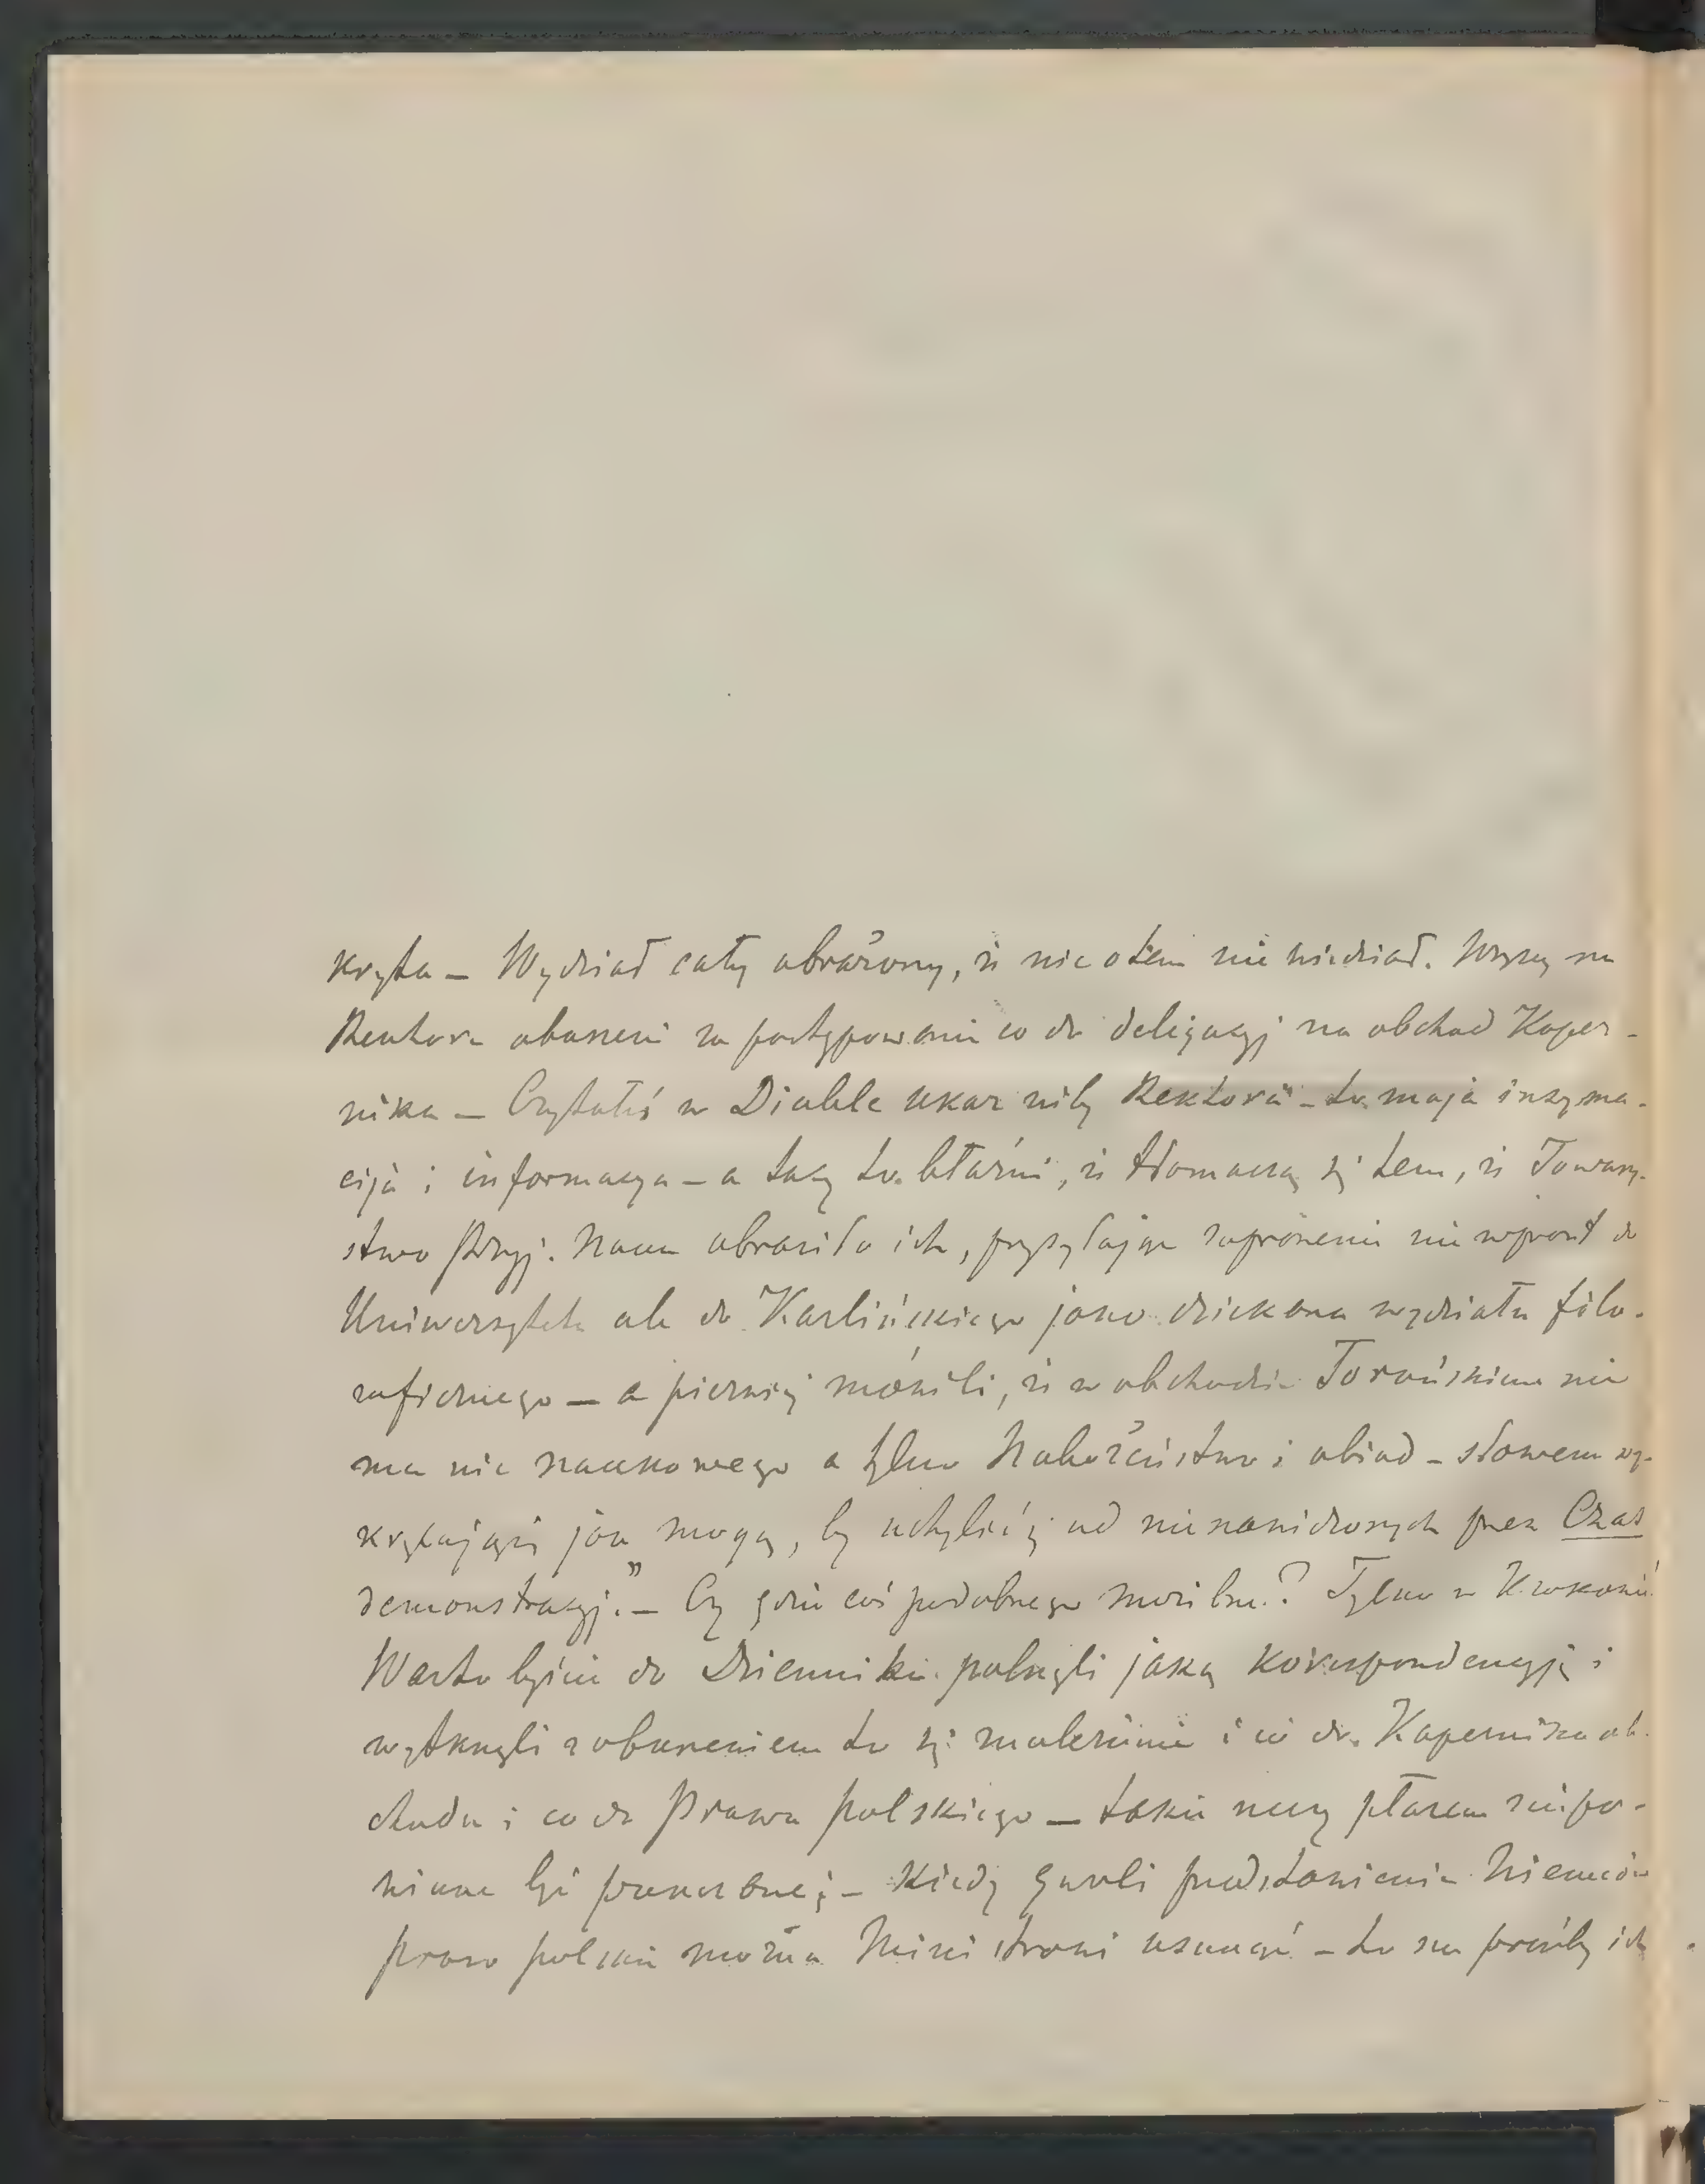 kryta – Wydział cały obrażony, iż nic o tem nie wiedział. Wszyscy na
Rektora oburzeni za postępowanie co do delegacyj na obchód Koper-
nika – Czytałeś w Diable ukaz niby Rektora – to moja inspira-
cija i informacya – a tacy to błaźni, iż tłomaczą się tem, iż Towarzy-
stwo Przyj. Nauk obraziło ich, przysyłając zaproszenie nie wprost do
Uniwersytetu ale do Karlińskiego jako dziekana wydziału filo-
zoficznego – a pierwej mówili, iż w obchodzie Toruńskim nie
ma nic naukowego a tylko Nabożeństwo i obiad – słowem wy-
kręcający jak mogą, by uchylić się od nienawidzonych przez Czas
demonstracyj." – Czy gdzie coś podobnego możebne? Tylko w Krakowie!
Warto byście do Dziennika palnęli jaką korespondencyją i
wytknęli z oburzeniem to się i co do Kopernika ob-
chodu i co do Prawa polskiego – takie rzeczy płazem nie po-
winne być – Kiedy gwoli przedstawienia Niemców
prawo polskie może Ministrowi usunąć – to na prośby ich